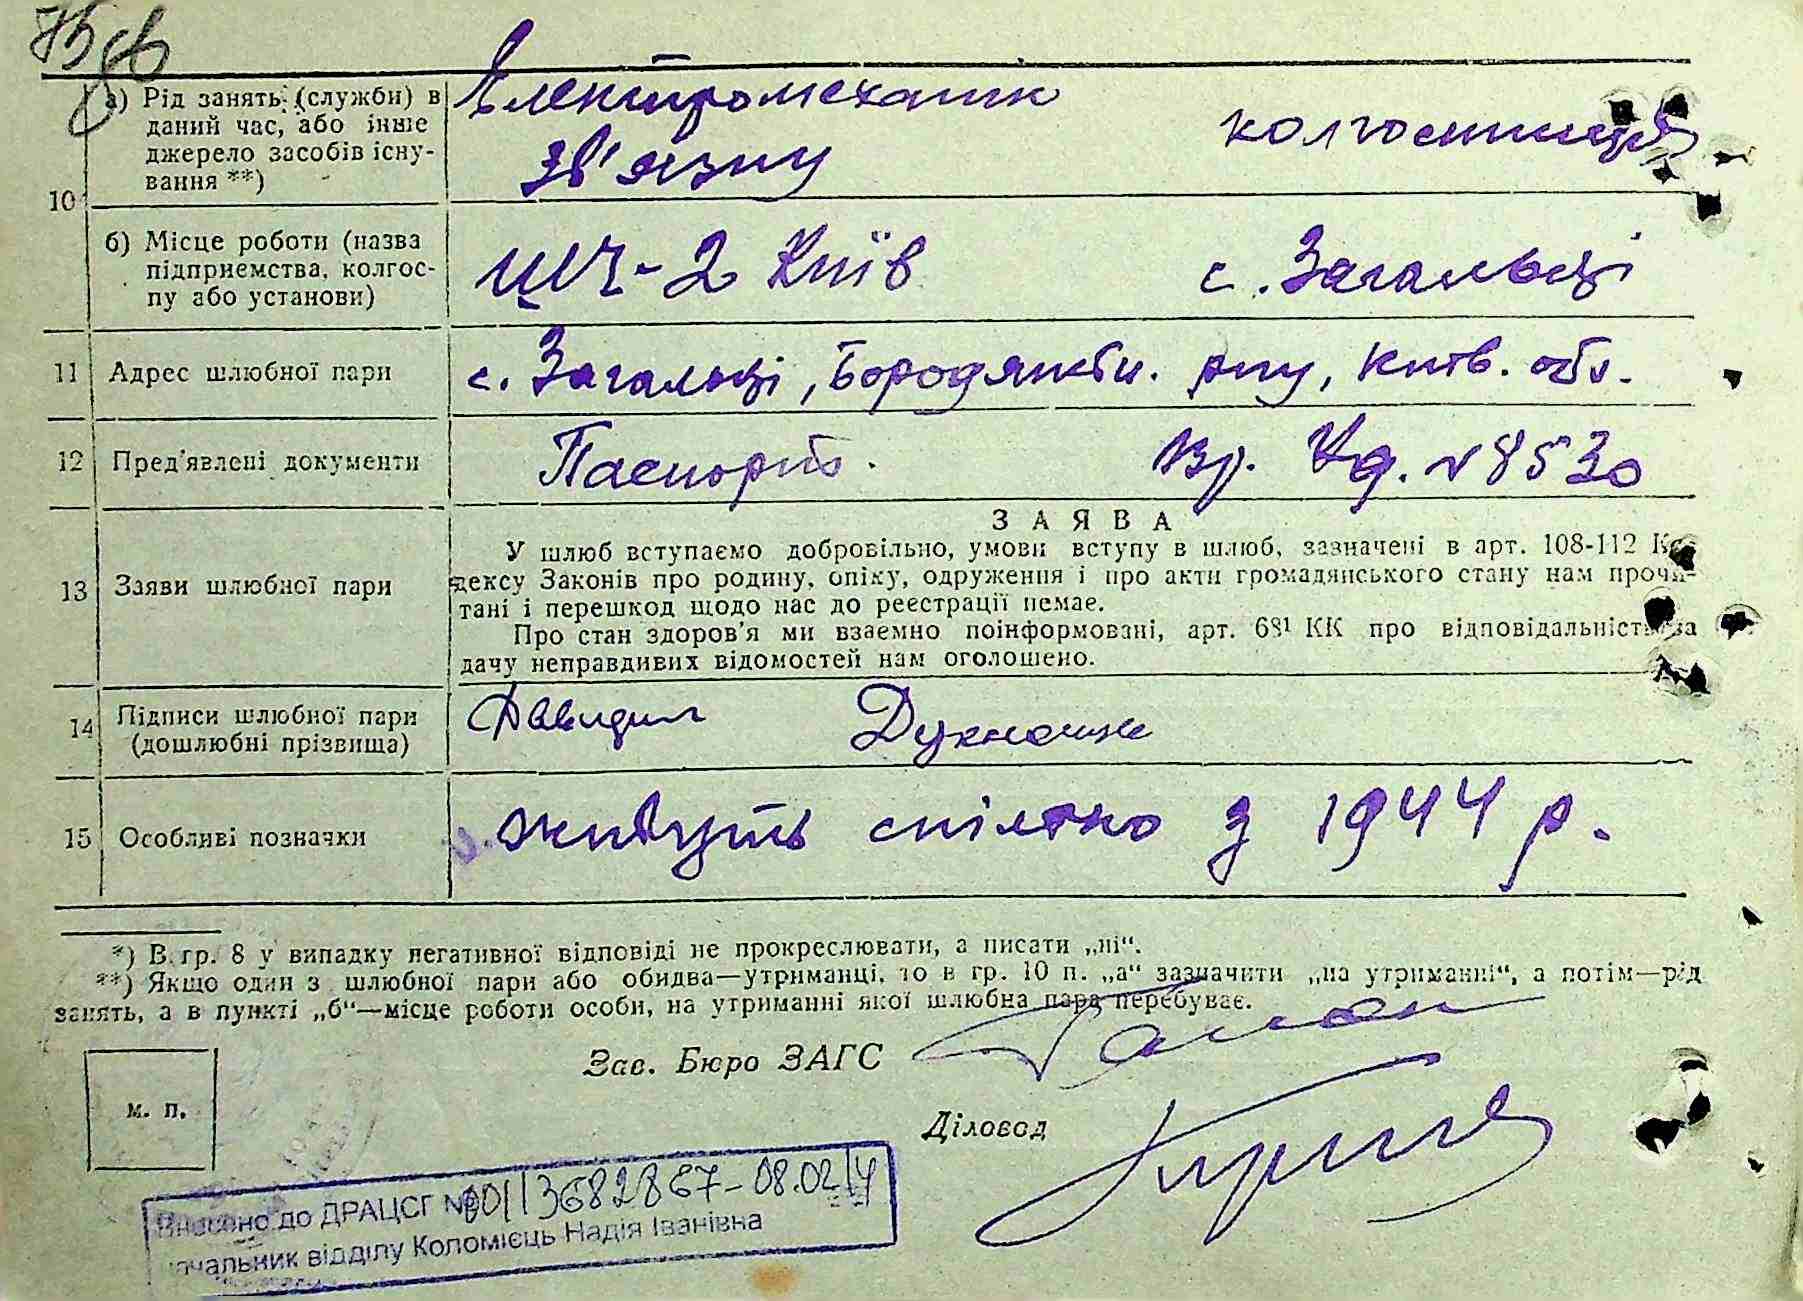 10 а) Рід занять (служби) в даний час, або інше джерело засобів існування **)
Електромеханик зв'язку
колгоспниця
б) Місце роботи (назва підприємства, колгоспу або установи)
ШЧ-2 Київ
с. Загальці
11 Адрес шлюбної пари
с. Загальці, Бородянськ. р-ну, Київ. обл.
12 Пред'явлені документи
Паспорт.
Вр. Уд. № 8530
13 Заяви шлюбної пари
ЗАЯВА
У шлюб вступаємо добровільно, умови вступу в шлюб, зазначені в арт. 108-112 Ко-
дексу Законів про родину, опіку, одруження і про акти громадянського стану нам прочи-
тані і перешкод щодо нас до реєстрації немає.
Про стан здоров'я ми взаємно поінформовані, арт. 68¹ КК про відповідальність за
дачу неправдивих відомостей нам оголошено.
14 Підписи шлюбної пари (дошлюбні прізвища)
15 Особливі позначки
живуть спільно з 1944 р.
*) В гр. 8 у випадку негативної відповіді не прокреслювати, а писати „ні“.
**) Якщо один з шлюбної пари або обидва—утриманці, то в гр. 10 п. „а“ зазначити „на утриманні“, а потім—рід
занять, а в пункті „б“—місце роботи особи, на утриманні якої шлюбна пара перебуває.
Зав. Бюро ЗАГС
Діловод
м. п.
Внесено до ДРАЦСГ № 00113682867-08.02.14
начальник відділу Коломієць Надія Іванівна